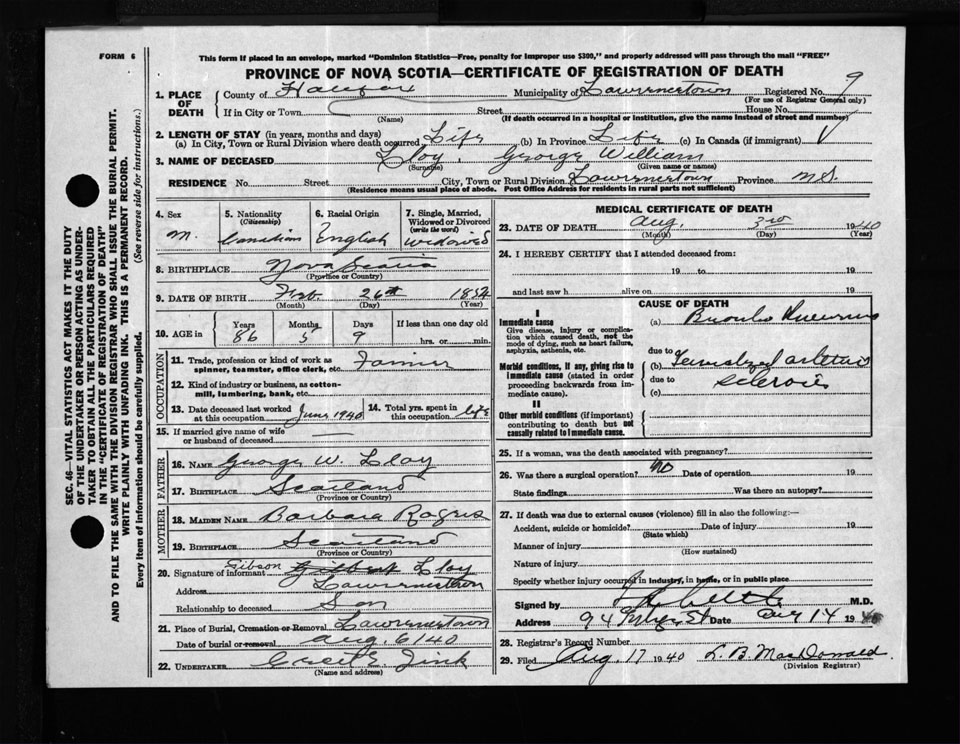 FORM 6
This form if placed in an envelope, marked "Dominion Statistics—Free, penalty for improper use $300," and properly addressed will pass through the mail "FREE"
PROVINCE OF NOVA SCOTIA—CERTIFICATE OF REGISTRATION OF DEATH
9
1. PLACE OF DEATH
County of Halifax Municipality of Lawrencetown Registered No.
(For use of Registrar General only)
If in City or Town Street House No.
(Name) (If death occurred in a hospital or institution, give the name instead of street and number)
2. LENGTH OF STAY (in years, months and days)
(a) In City, Town or Rural Division where death occurred Life (b) In Province Life (c) In Canada (if immigrant)
3. NAME OF DECEASED Lloy, George William
(Surname) (Given name or names)
RESIDENCE No. Street City, Town or Rural Division Lawrencetown Province N.S.
(Residence means usual place of abode. Post Office Address for residents in rural parts not sufficient)
4. Sex 5. Nationality (Citizenship) 6. Racial Origin 7. Single, Married, Widowed or Divorced (write the word)
M. Canadian English Widowed
8. BIRTHPLACE Nova Scotia
(Province or Country)
9. DATE OF BIRTH Feb. 26th 1854
(Month) (Day) (Year)
10. AGE in Years Months Days If less than one day old
86 5 9 hrs. or min.
OCCUPATION
11. Trade, profession or kind of work as spinner, teamster, office clerk, etc. Farmer
12. Kind of industry or business, as cotton-mill, lumbering, bank, etc.
13. Date deceased last worked at this occupation June 1940 14. Total yrs. spent in this occupation life
15. If married give name of wife or husband of deceased
FATHER
16. NAME George W. Lloy
17. BIRTHPLACE Scotland
(Province or Country)
MOTHER
18. MAIDEN NAME Barbara Rogers
19. BIRTHPLACE Scotland
(Province or Country)
20. Signature of informant Gibson Lloy
Address Lawrencetown
Relationship to deceased Son
21. Place of Burial, Cremation or Removal Lawrencetown
Date of burial or removal Aug. 6/40
22. UNDERTAKER Zink
(Name and address)
MEDICAL CERTIFICATE OF DEATH
23. DATE OF DEATH Aug. 3rd 1940
(Month) (Day) (Year)
24. I HEREBY CERTIFY that I attended deceased from:
19 to 19
and last saw h alive on 19
CAUSE OF DEATH
I
Immediate cause
Give disease, injury or complication which caused death, not the mode of dying, such as heart failure, asphyxia, asthenia, etc.
(a) Broncho Pneumonia
due to
Morbid conditions, if any, giving rise to immediate cause (stated in order proceeding backwards from immediate cause).
(b)
due to Sclerosis
(c)
II
Other morbid conditions (if important) contributing to death but not causally related to immediate cause.
25. If a woman, was the death associated with pregnancy?
26. Was there a surgical operation? No Date of operation 19
State findings Was there an autopsy?
27. If death was due to external causes (violence) fill in also the following:—
Accident, suicide or homicide? Date of injury 19
(State which)
Manner of injury
(How sustained)
Nature of injury
Specify whether injury occurred in industry, in home, or in public place
Signed by M.D.
Address 94 St Date Aug 14 1940
28. Registrar's Record Number
29. Filed Aug 17 1940 L. B. MacDonald
(Division Registrar)
SEC. 46—VITAL STATISTICS ACT MAKES IT THE DUTY
OF THE UNDERTAKER OR PERSON ACTING AS UNDER-
TAKER TO OBTAIN ALL THE PARTICULARS REQUIRED
IN THE "CERTIFICATE OF REGISTRATION OF DEATH"
AND TO FILE THE SAME WITH THE DIVISION REGISTRAR WHO SHALL ISSUE THE BURIAL PERMIT.
WRITE PLAINLY WITH UNFADING INK. THIS IS A PERMANENT RECORD.
Every item of information should be carefully supplied. (See reverse side for instructions.)